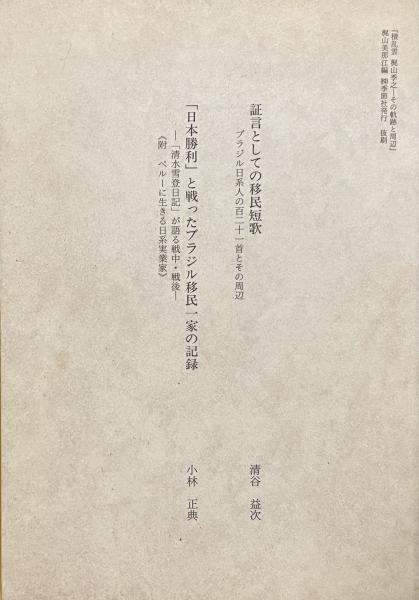 『積乱雲 梶山季之―その軌跡と周辺』
梶山美那江編 ㈱季節社発行 抜刷
証言としての移民短歌
ブラジル日系人の百二十一首とその周辺
清谷 益次
「日本勝利」と戦ったブラジル移民一家の記録
―「清水雪登日記」が語る戦中・戦後―
《附 ペルーに生きる日系実業家》
小林 正典